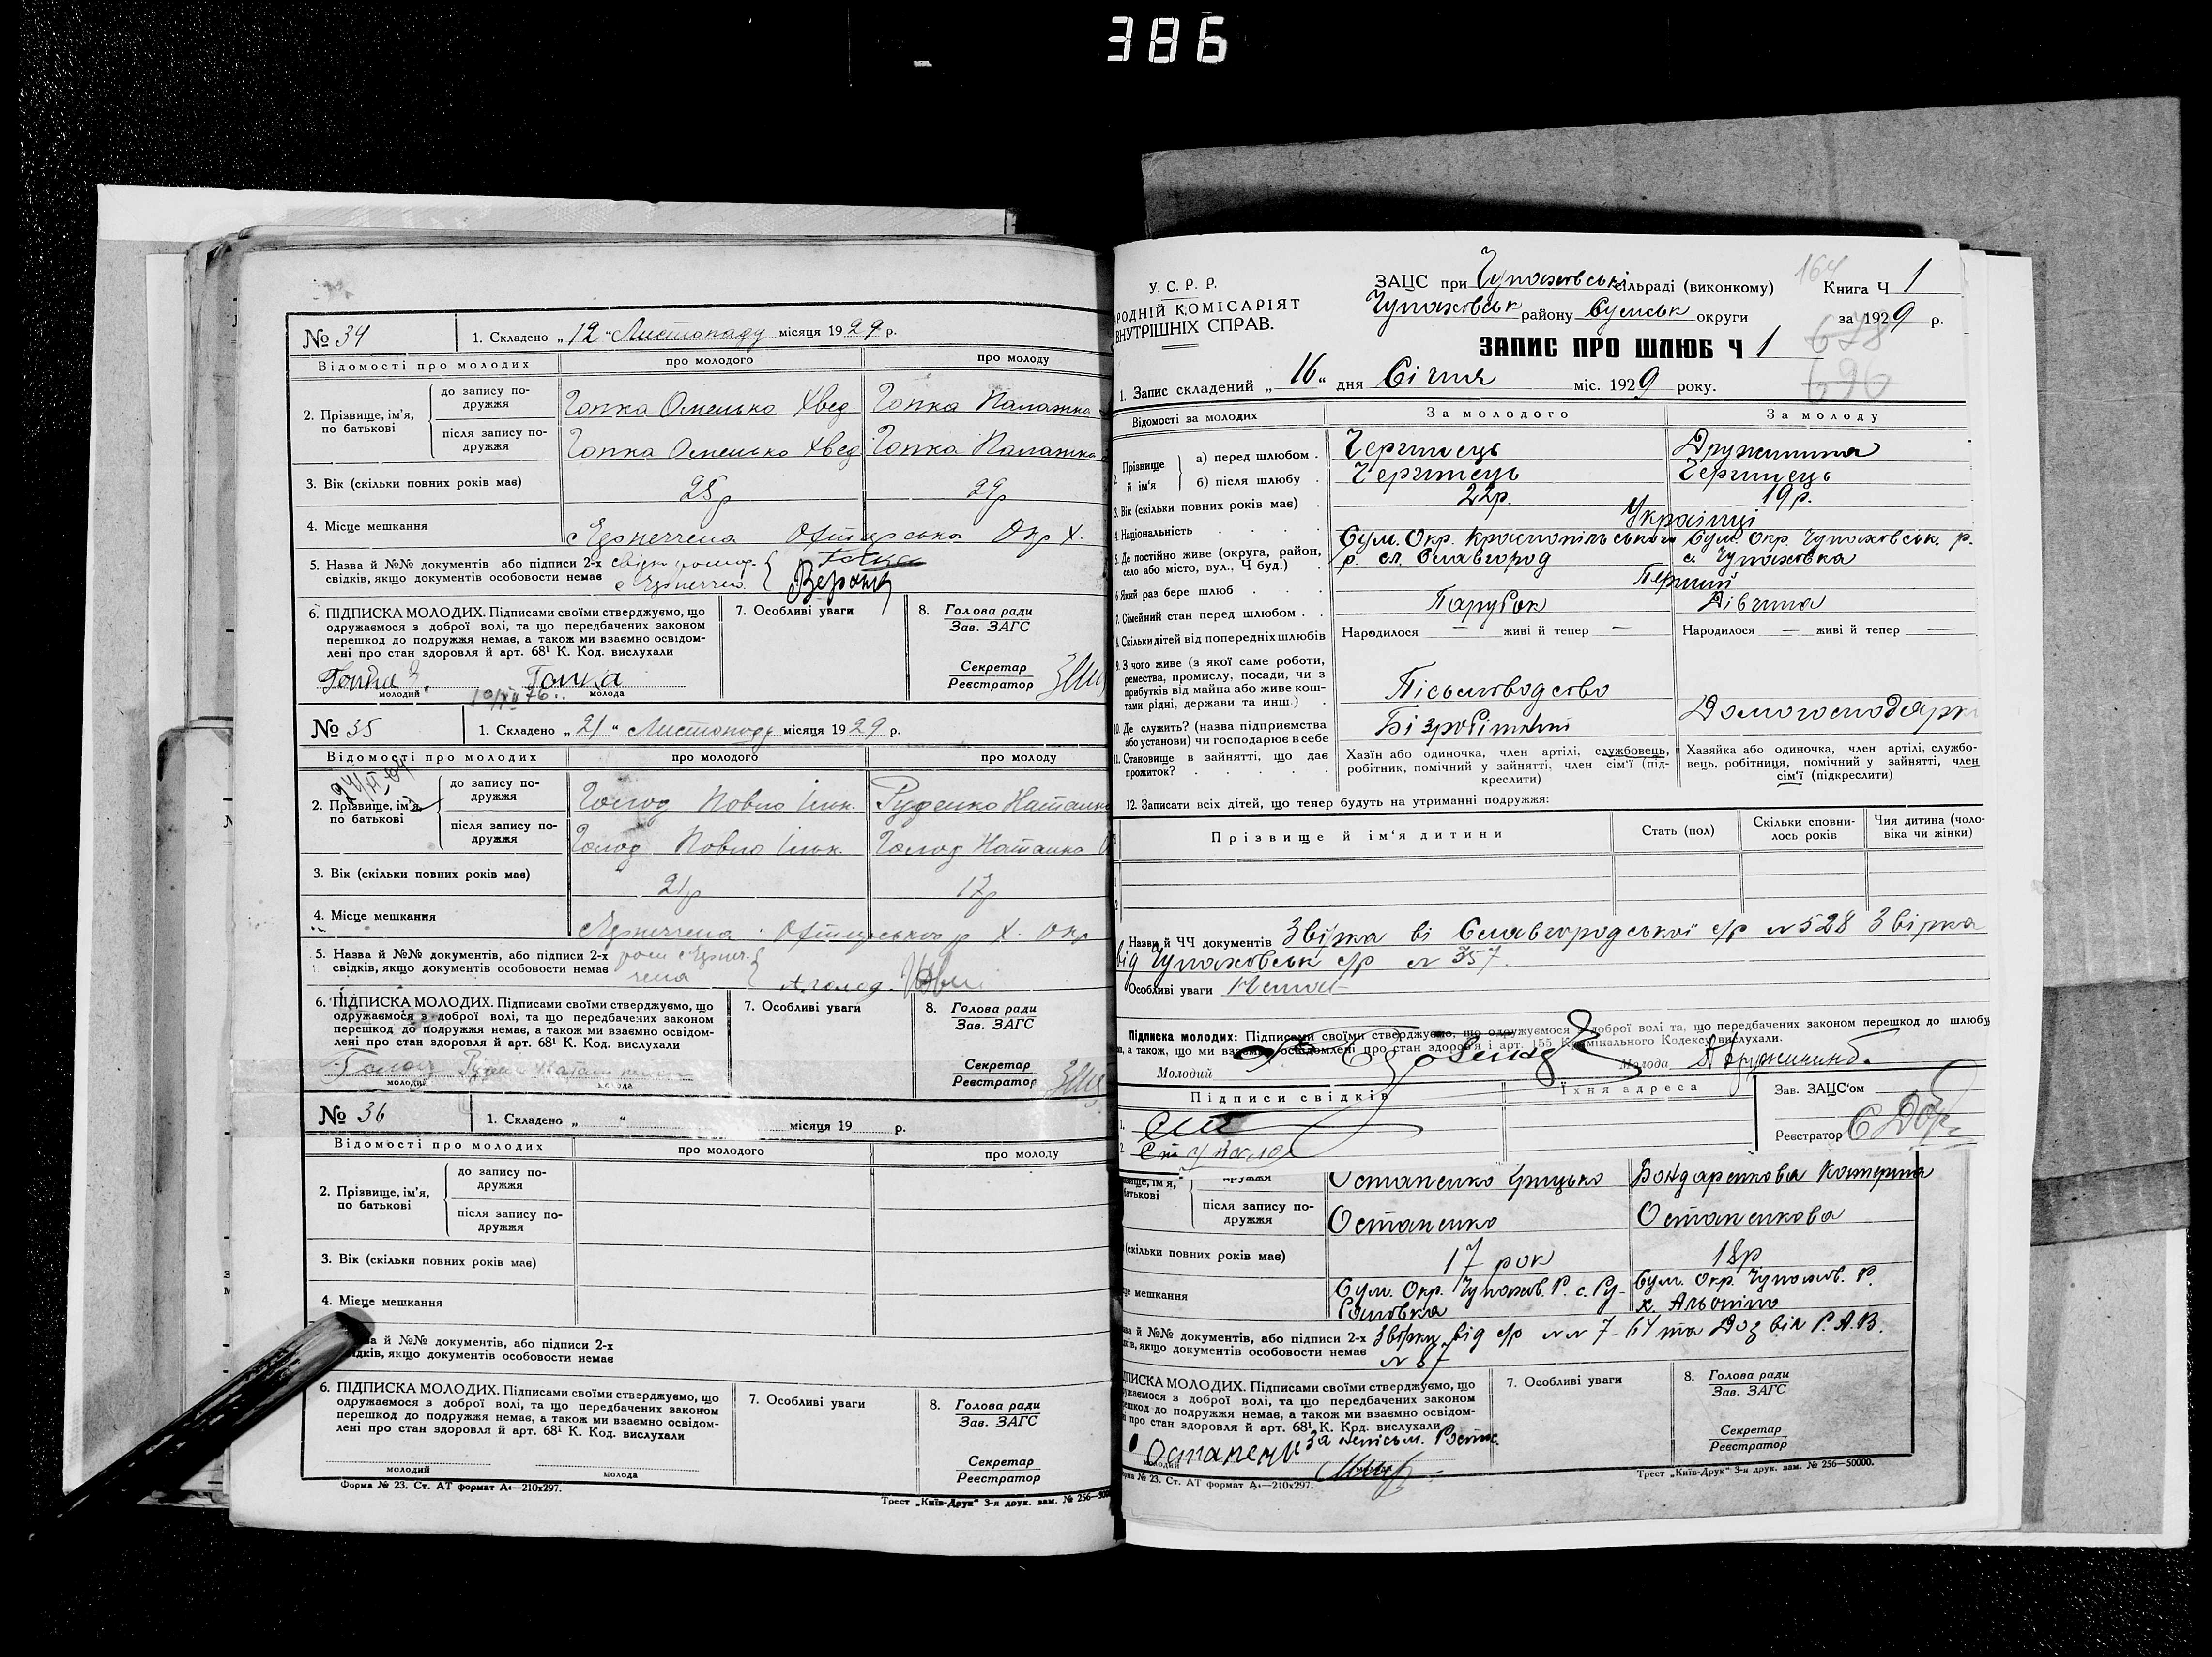 386
№ 34
1. Складено „12“ Листопаду місяця 1929 р.
Відомості про молодих
про молодого
про молоду
2. Прізвище, ім'я, по батькові
до запису подружжя
Гопка Омелько Хвед
Гопка Палажка
після запису подружжя
Гопка Омелько Хвед
Гопка Палажка
3. Вік (скільки повних років має)
25р
29р
4. Місце мешкання
Охтирського Окр Х.
5. Назва й №№ документів або підписи 2-х
свідків, якщо документів особовости немає
6. ПІДПИСКА МОЛОДИХ. Підписами своїми стверджуємо, що
одружаємося з доброї волі, та що передбачених законом
перешкод до подружжя немає, а також ми взаємно освідом-
лені про стан здоровля й арт. 68¹ К. Код. вислухали
молодий
Гопка
молода
7. Особливі уваги
8. Голова ради
Зав. ЗАГС
Секретар
Реєстратор
№ 35
1. Складено „21“ Листопаду місяця 1929 р.
Відомості про молодих
про молодого
про молоду
2. Прізвище, ім'я, по батькові
до запису подружжя
Голод Повло Ілюк.
Руденко Наталка
після запису подружжя
Голод Повло Ілюк.
Голод Наталка
3. Вік (скільки повних років має)
21р
17р
4. Місце мешкання
Охтирського р Х. Окр
5. Назва й №№ документів, або підписи 2-х
свідків, якщо документів особовости немає
6. ПІДПИСКА МОЛОДИХ. Підписами своїми стверджуємо, що
одружаємося з доброї волі, та що передбачених законом
перешкод до подружжя немає, а також ми взаємно освідом-
лені про стан здоровля й арт. 68¹ К. Код. вислухали
Голод
молодий
молода
7. Особливі уваги
8. Голова ради
Зав. ЗАГС
Секретар
Реєстратор
№ 36
1. Складено „ “ місяця 19 р.
Відомості про молодих
про молодого
про молоду
2. Прізвище, ім'я, по батькові
до запису подружжя
після запису подружжя
3. Вік (скільки повних років має)
4. Місце мешкання
й №№ документів, або підписи 2-х
якщо документів особовости немає
6. ПІДПИСКА МОЛОДИХ. Підписами своїми стверджуємо, що
одружаємося з доброї волі, та що передбачених законом
перешкод до подружжя немає, а також ми взаємно освідом-
лені про стан здоровля й арт. 68¹ К. Код. вислухали
молодий
молода
7. Особливі уваги
8. Голова ради
Зав. ЗАГС
Секретар
Реєстратор
Форма № 23. Ст. АТ формат А₄—210x297.
Трест „Київ-Друк“ 3-я друк. зам. № 256—500
У. С. Р. Р.
РОДНІЙ КОМІСАРІЯТ
ВНУТРІШНІХ СПРАВ.
ЗАЦС при Чупаховській сільраді (виконкому)
164
Книга Ч 1
Чупаховськ району Сумськ округи
за 1929 р.
ЗАПИС ПРО ШЛЮБ Ч 1
678
696
1. Запис складений „16“ дня Січня міс. 1929 року.
Відомості за молодих
За молодого
За молоду
2. Прізвище й ім'я
а) перед шлюбом
Чернишець
Дружинина
б) після шлюбу
Чернишець
Чернишець
3. Вік (скільки повних років має)
22р.
19р.
4. Національність
Українці
5. Де постійно живе (округа, район,
село або місто, вул., Ч буд.)
Сум. Окр. Краснопільського
р. сл. Славгород
Сум. Окр. Чупаховськ. р.
с. Чупаховка
6 Який раз бере шлюб
Перший
7. Сімейний стан перед шлюбом
Парубок
Дівчина
8. Скільки дітей від попередніх шлюбів
Народилося — живі й тепер —
Народилося — живі й тепер —
9. З чого живе (з якої саме роботи,
ремества, промислу, посади, чи з
прибутків від майна або живе кош-
тами рідні, держави та инш.)
Пісьмоводство
Домогосподарк
10. Де служить? (назва підприємства
або установи) чи господарює в себе
Безробітний
11. Становище в зайнятті, що дає
прожиток?
Хазїн або одиночка, член артілі, службовець,
робітник, помічний у зайнятті, член сім'ї (під-
креслити)
Хазяйка або одиночка, член артілі, службо-
вець, робітниця, помічний у зайнятті, член
сім'ї (підкреслити)
12. Записати всіх дітей, що тепер будуть на утриманні подружжя:
Прізвище й ім'я дитини
Стать (пол)
Скільки сповни-
лось років
Чия дитина (чоло-
віка чи жінки)
Назви й ЧЧ документів Звірка ві Славгородської с/р № 528 Звірка
від Чупаховськ с/р № 357.
Особливі уваги
Підписка молодих: Підписами своїми стверджуємо, що одружуємося з доброї волі та, що передбачених законом перешкод до шлюбу
а також, що ми взаємно освідомлені про стан здоров'я і арт. 155 Кримінального Кодексу вислухали.
Молодий
Молода
Підписи свідків
Їхня адреса
Зав. ЗАЦС'ом
Реєстратор
1.
2.
Остапенко Грицько
Бондаренкова Катерина
після запису подружжя
Остапенко
Остапенкова
(скільки повних років має)
17 рок
18р
мешкання
Сум. Окр. Чупахов. Р. с.
Сум. Окр. Чупахов. Р.
х.
й №№ документів, або підписи 2-х
якщо документів особовости немає
Звірки від с/р №№ 7-64 та Дозвіл Р.А.В.
№ 87
ПІДПИСКА МОЛОДИХ. Підписами своїми стверджуємо, що
одружаємося з доброї волі, та що передбачених законом
перешкод до подружжя немає, а також ми взаємно освідом-
про стан здоровля й арт. 68¹ К. Код. вислухали
Остапенко
за
7. Особливі уваги
8. Голова ради
Зав. ЗАГС
Секретар
Реєстратор
№ 23. Ст. АТ формат А₄—210x297.
Трест „Київ-Друк“ 3-я друк. зам. № 256—50000.